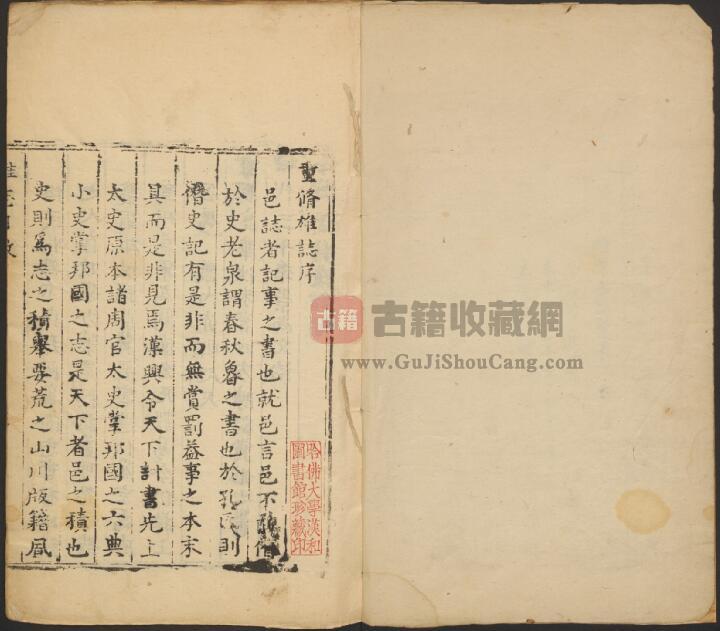 重脩雄誌序
邑誌者記事之書也就邑言邑不僭
於史老泉謂春秋魯之書也於孔氏則
僭史記有是非而無賞罰益事之本末
具而是非見焉漢興令天下計書先上
太史原本諸周官太史掌邦國之六典
小史掌邦國之志是天下者邑之積也
史則爲志之積舉要荒之山川版籍風
哈佛大學漢和
圖書館珍藏印
古籍
古籍收藏網
www.GuJiShouCang.com